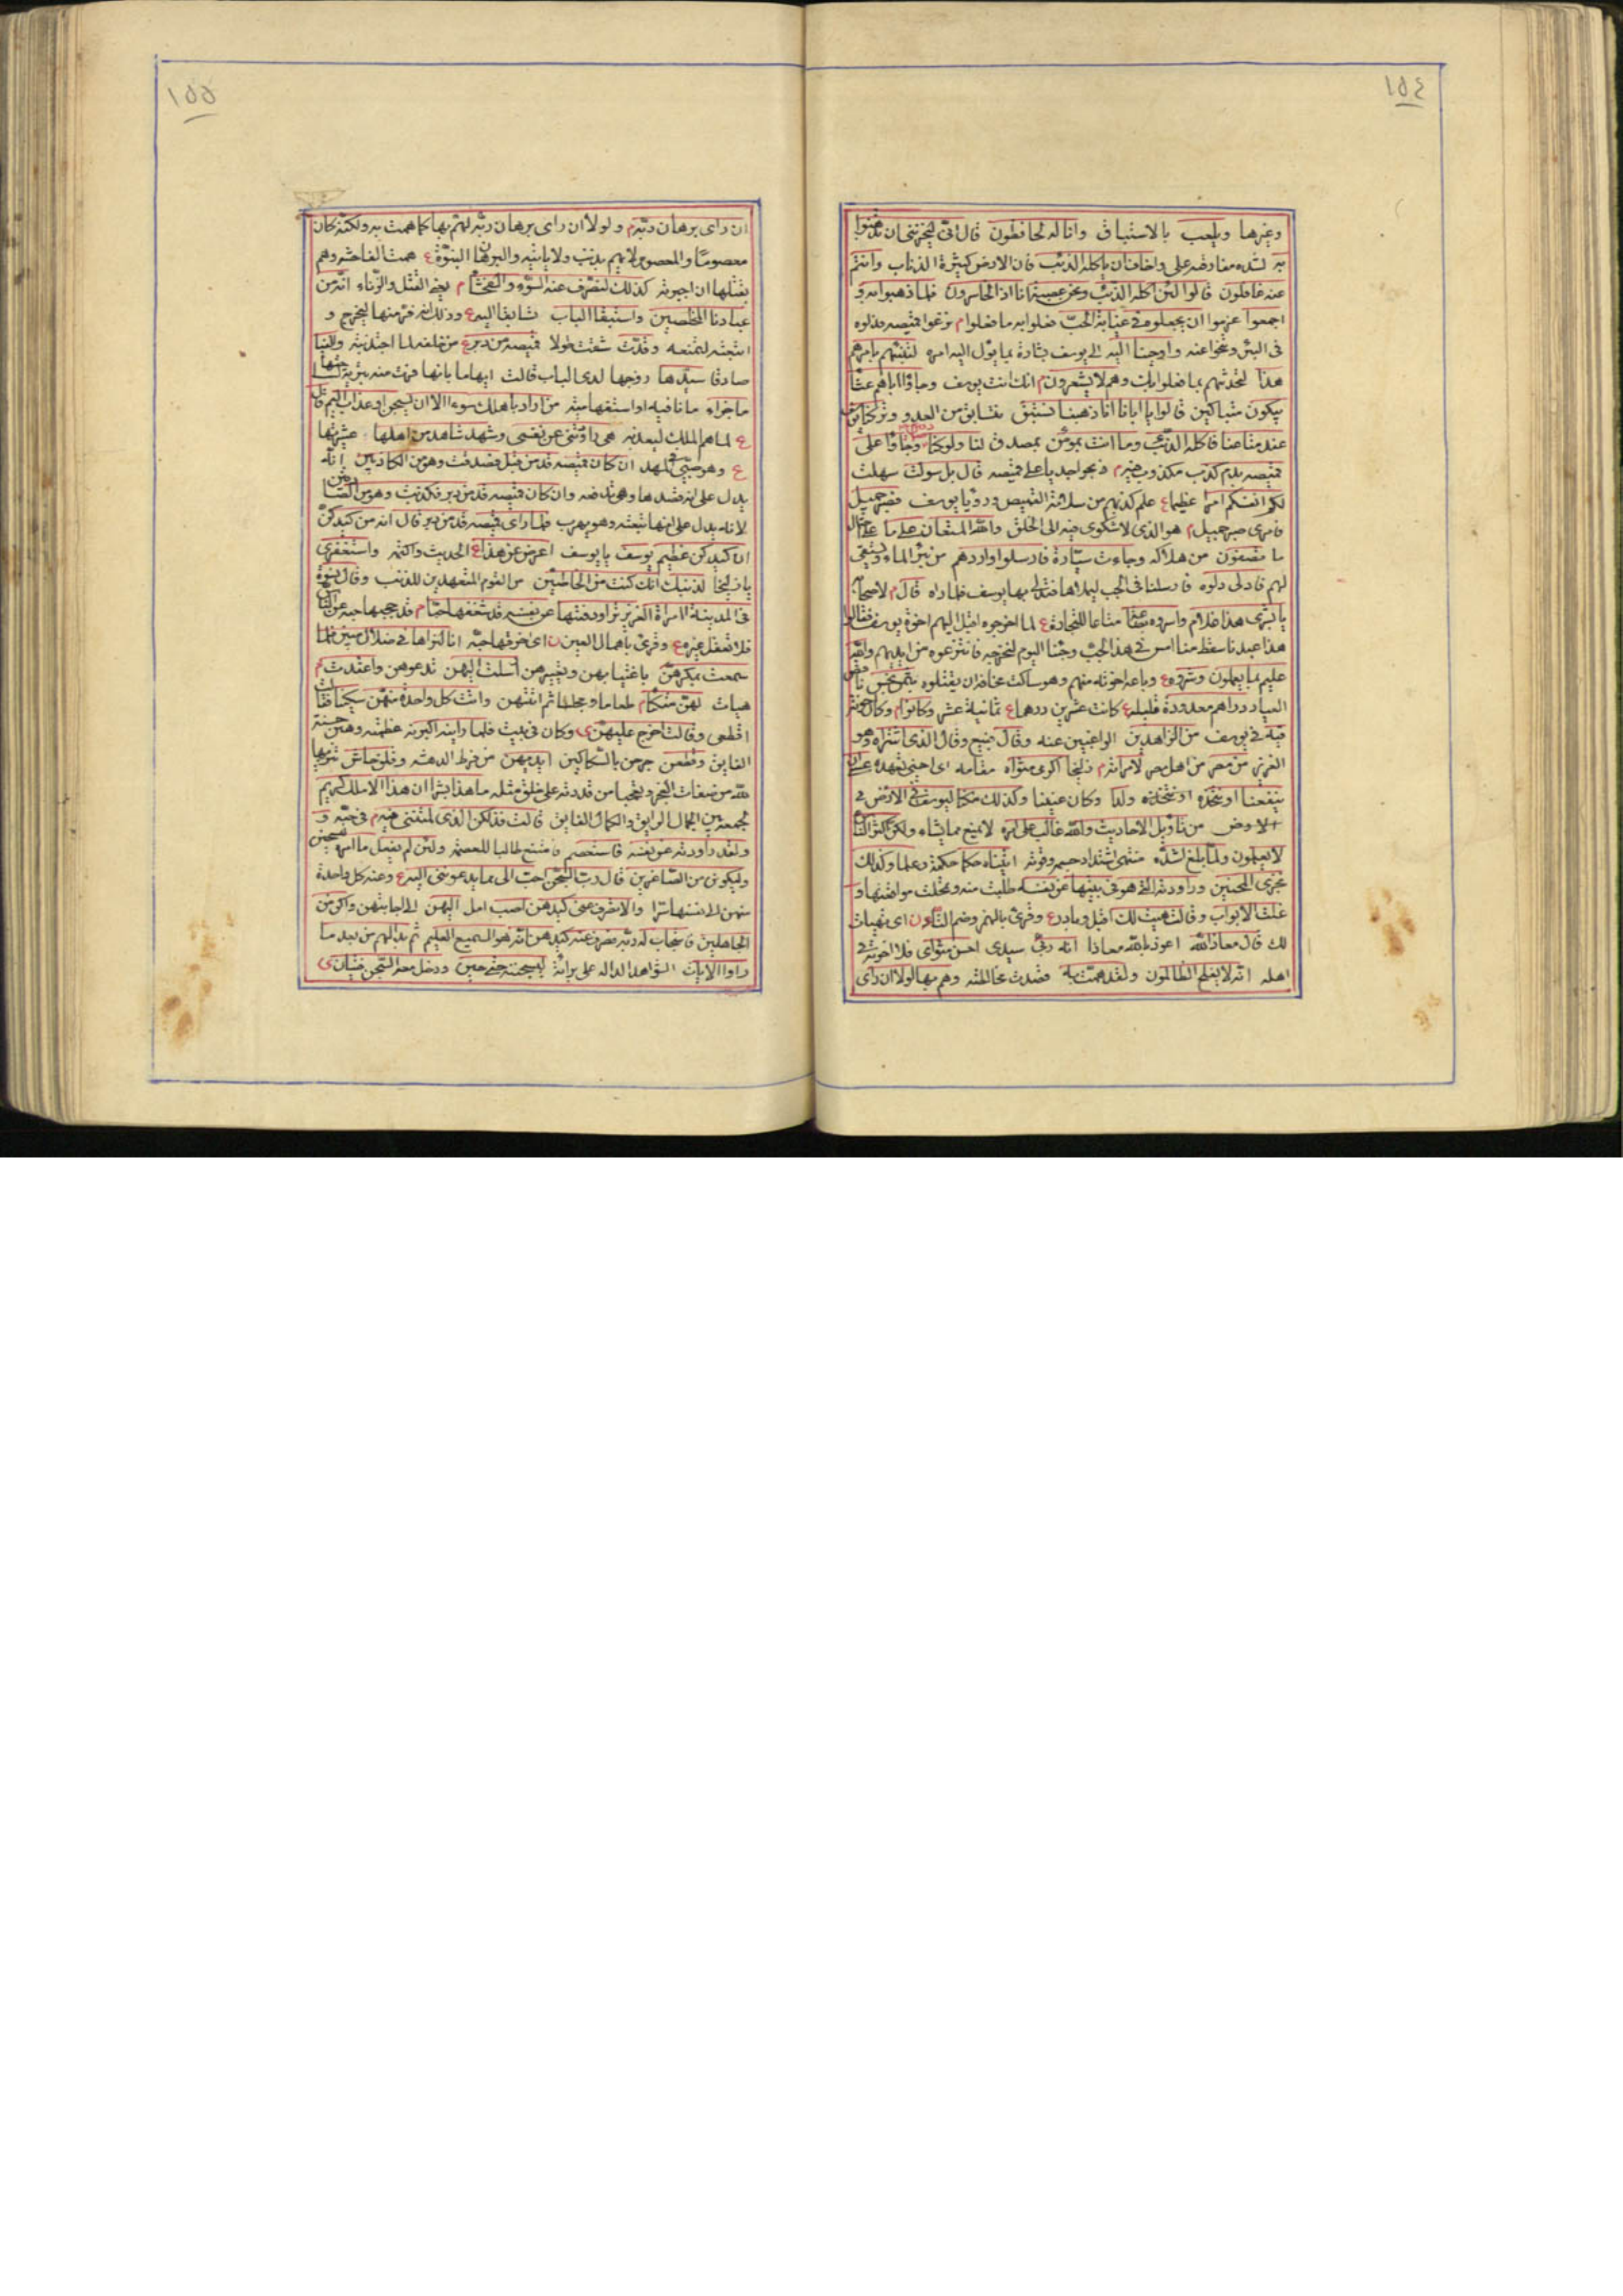 ١٥٤
وغيرها ويلعب بالاستباق وانا له لحافظون قال انى ليحزننى ان تذهبوا
به لشدة مفارقته على واخاف ان ياكله الذئب فان الارض كثيرة الذئاب وانتم
عنه غافلون قالوا لئن اكله الذئب ونحن عصبة انا اذا لخاسرون فلما ذهبوا به و
اجمعوا عزموا ان يجعلوه فى غيابة الجب فعلوا به ما فعلوا م نزعوا قميصه
فى البئر وتنحوا عنه واوحينا اليه الى يوسف بشارة بما يؤل اليه امره لتنبئنهم بامرهم
هذا لتحدثنهم بما فعلوا بك وهم لا يشعرون م انك انت يوسف وجاؤا اباهم عشاء
يبكون متباكين قالوا يا ابانا انا ذهبنا نستبق نتسابق من العدو وتركنا يوسف
عند متاعنا فاكله الذئب وما انت بمؤمن بمصدق لنا ولو كنا وجاؤا على
قميصه بدم كذب مكذوب فيه م ذبحوا جديا على قميصه قال بل سولت سهلت
لكم انفسكم امرا عظيما ع علم كذبهم من سلامة القميص ورؤيا يوسف فصبر جميل
فامرى صبر جميل م هو الذى لا شكوى فيه الى الخلق والله المستعان على ما
ما تصفون من هلاكه وجاءت سيارة فارسلوا واردهم من يرد الماء ويستقى
لهم فادلى دلوه فارسلنا فى الجب ليملاها فتدلى بها يوسف فلما راه قال م لاصحابه
يا بشرى هذا غلام واسروه بضاعة متاعا للتجارة ع لما اخرجوه اقبل اليهم اخوة يوسف فقالوا
هذا عبدنا سقط منا امس فى هذا الجب وجئنا اليوم لنخرجه فانتزعوه من ايديهم والله
عليم بما يعملون وشروه ع وباعه اخوته منهم وهو ساكت مخافة ان يقتلوه بثمن بخس ناقص
العيار دراهم معدودة قليلة ع كانت عشرين درهما ع ثمانية عشر وكانوا م وكان اخوته
فيه فى يوسف من الزاهدين الراغبين عنه وقال الذى اشتراه وهو
العزيز من مصر من اهل مصر لامراته م زليخا اكرمى مثواه مقامه اى احسنى تعهده عسى ان
ينفعنا او نتخذه ولدا وكان عنينا وكذلك مكنا ليوسف فى الارض
من تاويل الاحاديث والله غالب على امره لا يمنع مما يشاء ولكن اكثر الناس
لا يعلمون ولما بلغ اشده منتهى اشتداد جسمه وقوته اتيناه حكما حكمة وعلما وكذلك
نجزى المحسنين وراودته التى هو فى بيتها عن نفسه طلبت منه وتمحلت مواقعتها و
غلقت الابواب وقالت هيت لك اقبل وبادر ع وقرئ بالهمز وضم التاء ن اى تهيات
لك قال معاذ الله اعوذ بالله معاذا انه ربى سيدى احسن مثواى فلا اخونه فى
اهله انه لا يفلح الظالمون ولقد همت به قصدت مخالطته وهم بها لولا ان راى
١٥٥
ان راى برهان ربه م ولولا ان راى برهان ربه لهم بها كما همت به ولكنه كان
معصوما والمعصوم لا يهم بذنب ولا ياتيه والبرهان النبوة ع همت الفاحشة وهم
بقتلها ان اجبرته كذلك لنصرف عنه السوء والفحشاء م يعنى القتل والزناء انه من
عبادنا المخلصين واستبقا الباب تسابقا اليه ع وذلك انه فر منها ليخرج و
اتبعته لتمنعه وقدت شقت طولا قميصه من دبر ع من خلفه لما اجتذبته والفيا
صادفا سيدها زوجها لدى الباب قالت ايهاما بانها فرت منه
ما جزاء ما نافية او استفهامية من اراد باهلك سوءا الا ان يسجن او عذاب اليم قال
ع لما هم الملك ليعذبه هى راودتنى عن نفسى وشهد شاهد من اهلها عشيرتها
ع وهو صبى فى المهد ان كان قميصه قد من قبل فصدقت وهو من الكاذبين انه
يدل على انه قصدها وهى تدفعه وان كان قميصه قد من دبر فكذبت وهو من الصادقين
لانه يدل على انها تبعته وهو يهرب فلما راى قميصه قد من دبر قال انه من كيدكن
ان كيدكن عظيم يوسف يا يوسف اعرض عن هذا ع الحديث واكتمه واستغفرى
يا زليخا لذنبك انك كنت من الخاطئين من القوم المتعمدين للذنب وقال نسوة
فى المدينة امراة العزيز تراود فتيها عن نفسه قد شغفها حبا م قد حجبها حبه عن الناس
فلا تعقل غيره ع وقرئ باهمال العين ن اى احرقها حبه انا لنراها فى ضلال مبين فلما
سمعت بمكرهن باغتيابهن وتعييرهن ارسلت اليهن تدعوهن واعتدت م
هيات لهن متكئا م طعاما ومجلسا ثم اتتهن واتت كل واحدة منهن سكينا
اقطعى وقالت اخرج عليهن ى وكان فى بيت فلما راينه اكبرنه عظمنه وهبن حسنه
الفايق وقطعن جرحن بالسكاكين ايديهن من فرط الدهشة وقلن حاش
لله من صفات العجز وتعجبا من قدرته على خلق مثله ما هذا بشرا ان هذا الا ملك كريم
لجمعه بين الجمال الرايق والكمال الفايق قالت فذلكن الذى لمتننى فيه م فى حبه و
ولقد راودته عن نفسه فاستعصم فامتنع طالبا للعصمة ولئن لم يفعل ما امره ليسجنن
وليكونن من الصاغرين قال رب السجن احب الى مما يدعوننى اليه ع وعنه كل واحدة
منهن الى نفسها سرا والا تصرف عنى كيدهن اصب امل اليهن الى اجابتهن واكن من
الجاهلين فاستجاب له ربه فصرف عنه كيدهن انه هو السميع العليم ثم بدا لهم من بعد ما
راوا الايات الشواهد الدالة على برائة ليسجننه حتى حين ودخل معه السجن فتيان ى